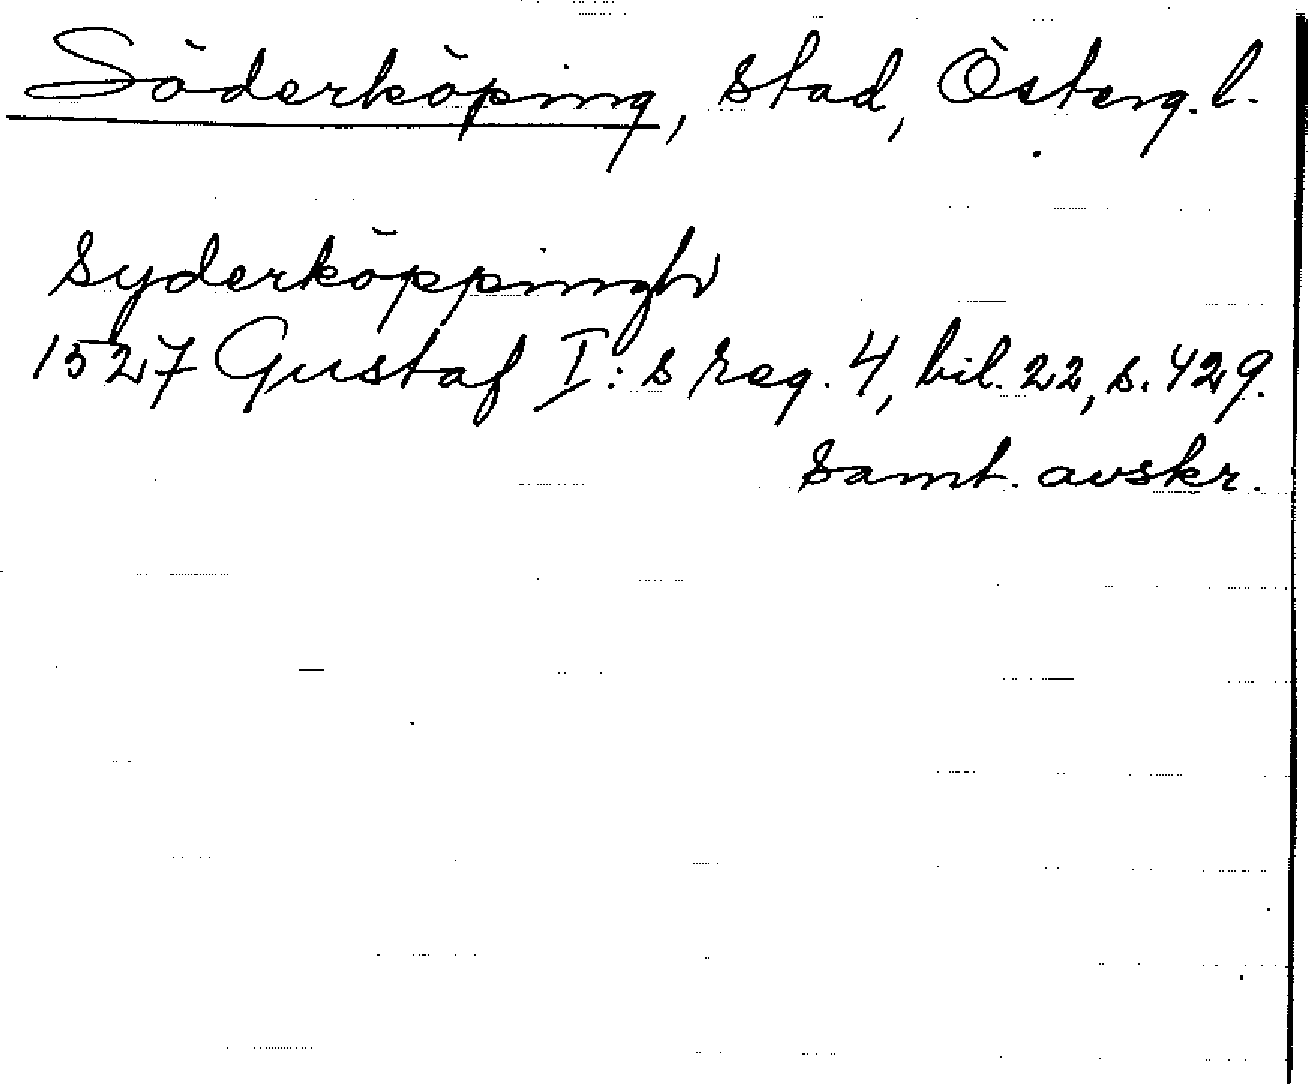 Söderköping, stad, Österg. l.
Syderköppingh
1527 Gustaf I:s reg. 4, bil. 22, s. 429.
Samt. avskr.